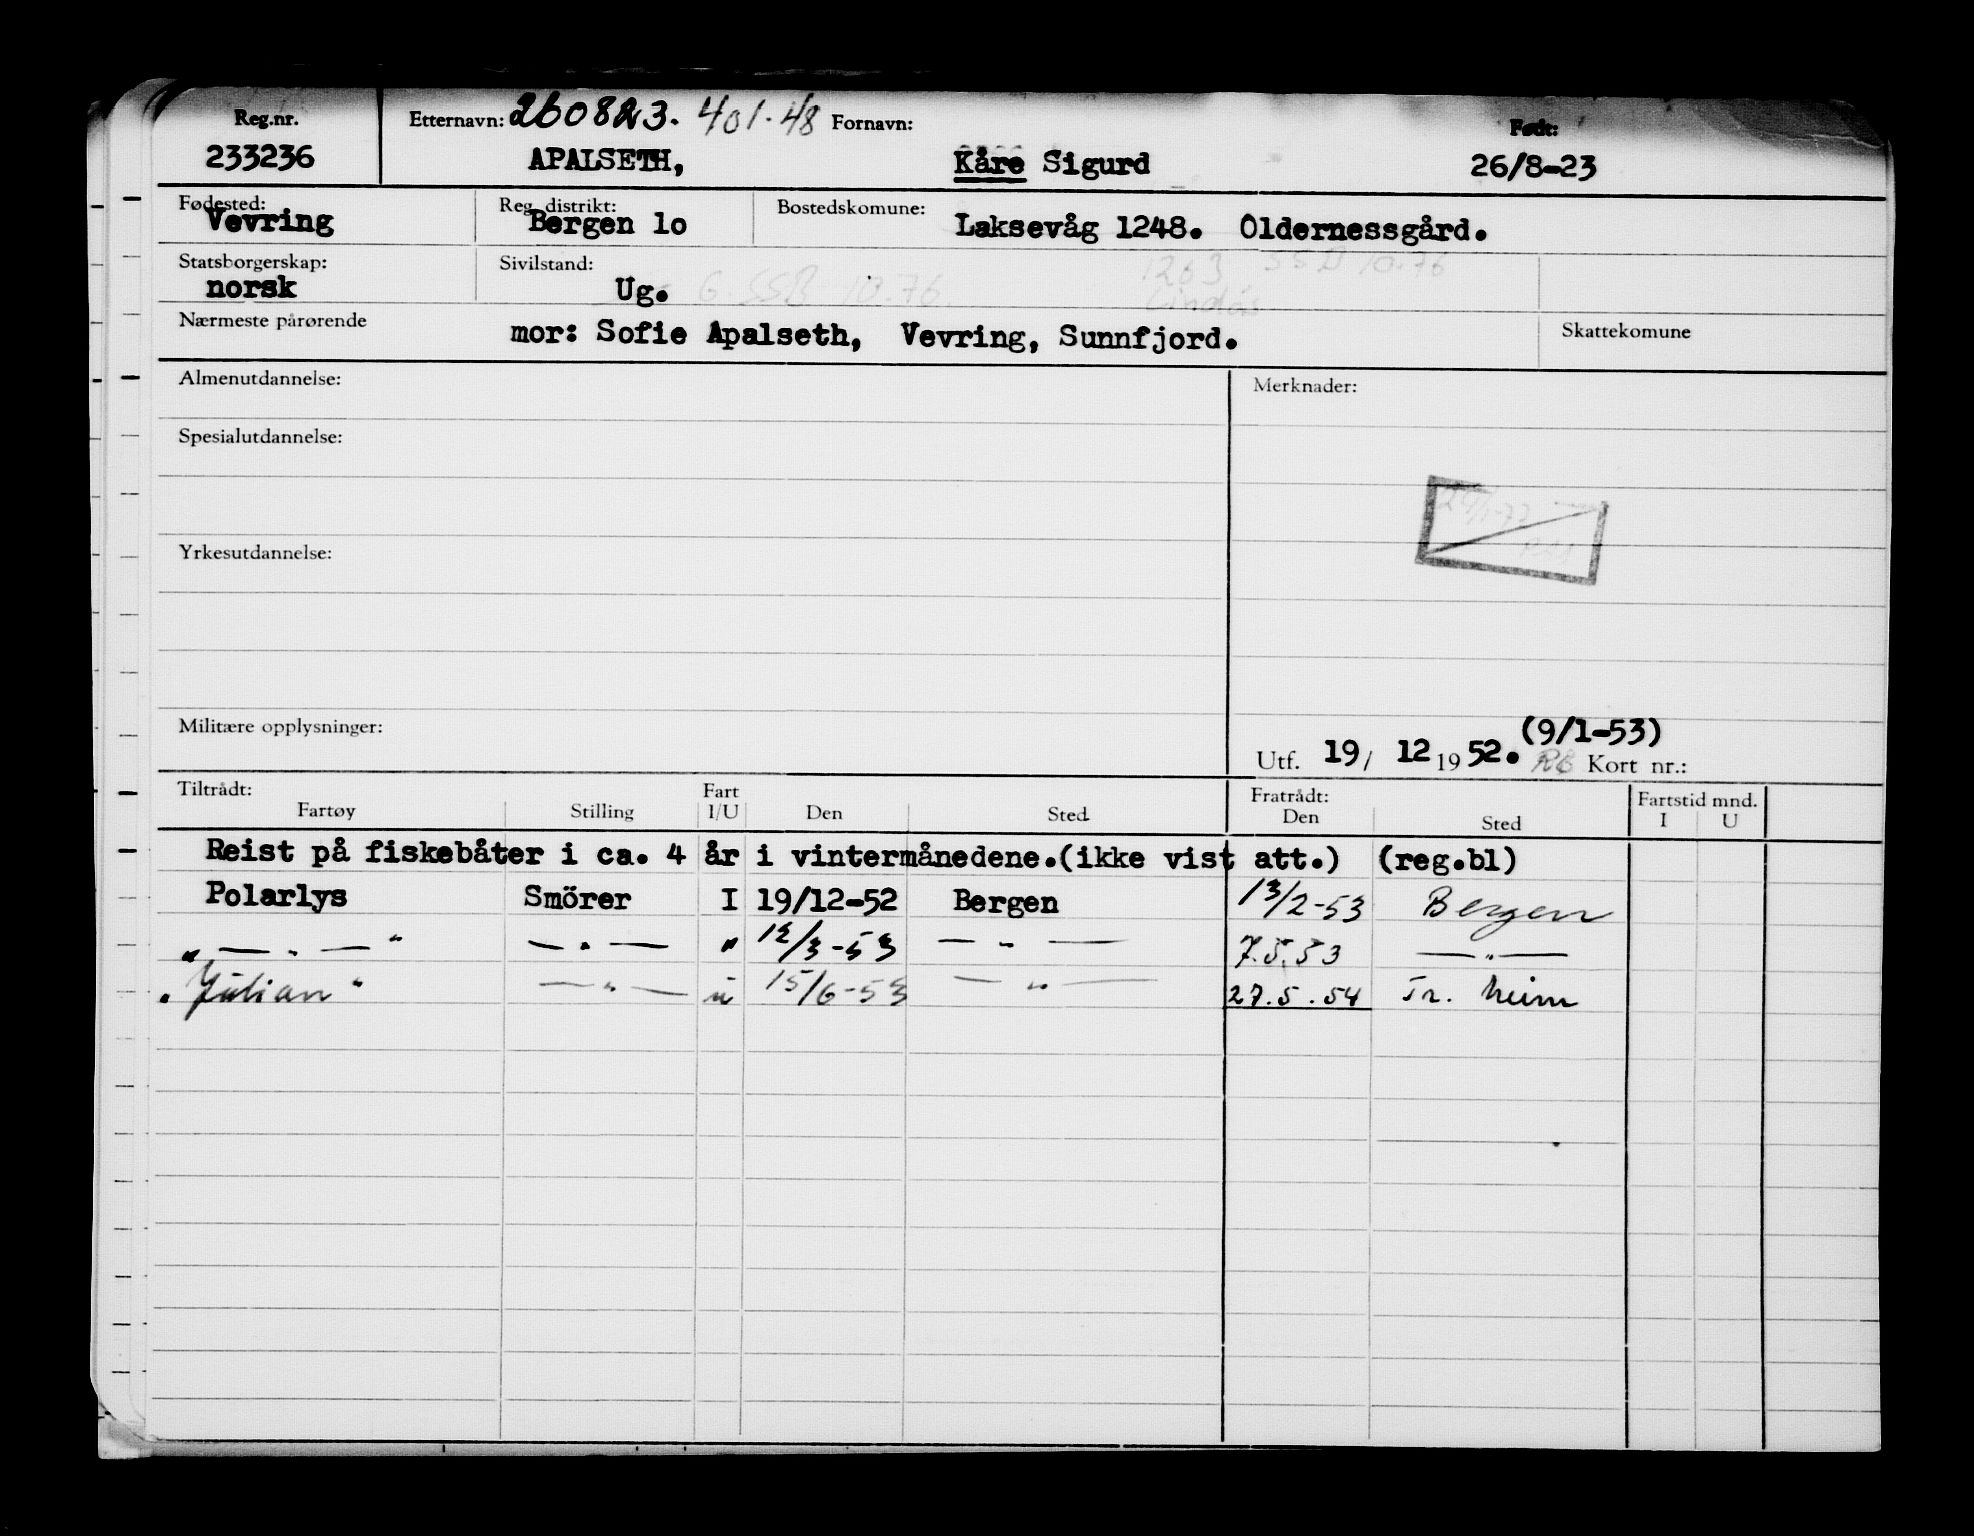 Reg.nr. Etternavn: 260823. 401.48 Fornavn: Født:
233236 APALSETH, Kåre Sigurd 26/8-23
Fødested: Reg. distrikt: Bostedskomune:
Vevring Bergen 1o Laksevåg 1248. Oldernessgård.
Statsborgerskap: Sivilstand: 1263 SSB 10.76
norsk Ug. G. SSB 10.76. Lindås
Nærmeste pårørende mor: Sofie Apalseth, Vevring, Sunnfjord. Skattekomune
Almenutdannelse: Merknader:
Spesialutdannelse:
Yrkesutdannelse:
Militære opplysninger: (9/1-53)
Utf. 19/ 12 19 52. Kort nr.:
Tiltrådt: Fart Fratrådt: Fartstid mnd.
Fartøy Stilling I/U Den Sted Den Sted I U
Reist på fiskebåter i ca. 4 år i vintermånedene.(ikke vist att.) (reg.bl)
Polarlys Smörer I 19/12-52 Bergen 13/2-53 Bergen
" — " — " — " — " 12/3-53 — " — 7.5.53 — " —
"Julian" — " — u 15/6-53 — " — 27.5.54 Tr.heim